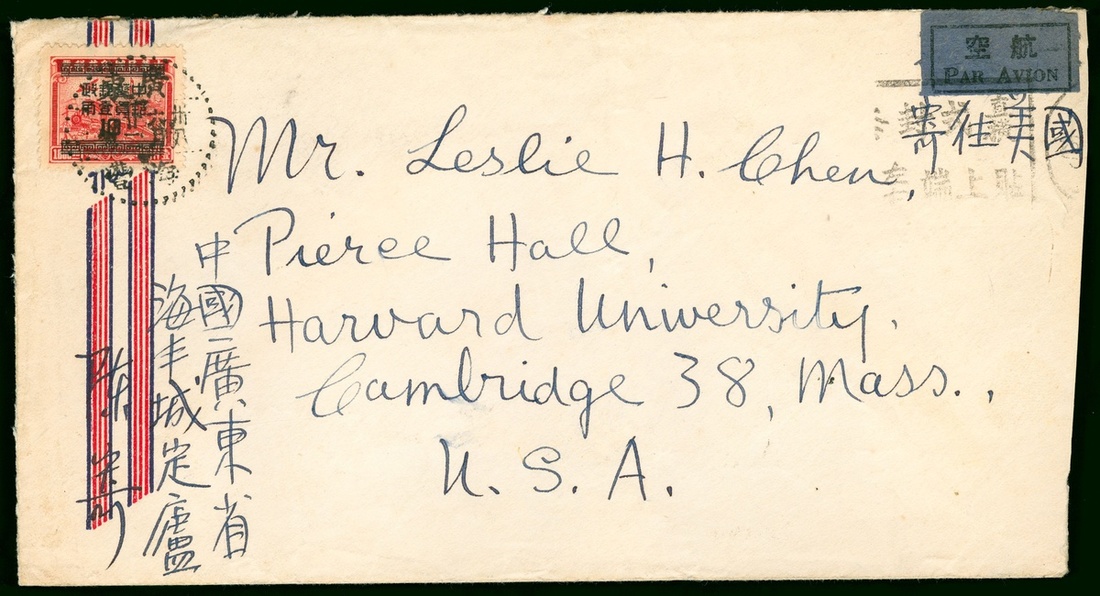 航空
PAR AVION
寄往美國
Mr. Leslie H. Chen,
Pierce Hall,
Harvard University,
Cambridge 38, Mass.,
U. S. A.
中國廣東省
海丰城定廬
陳寄